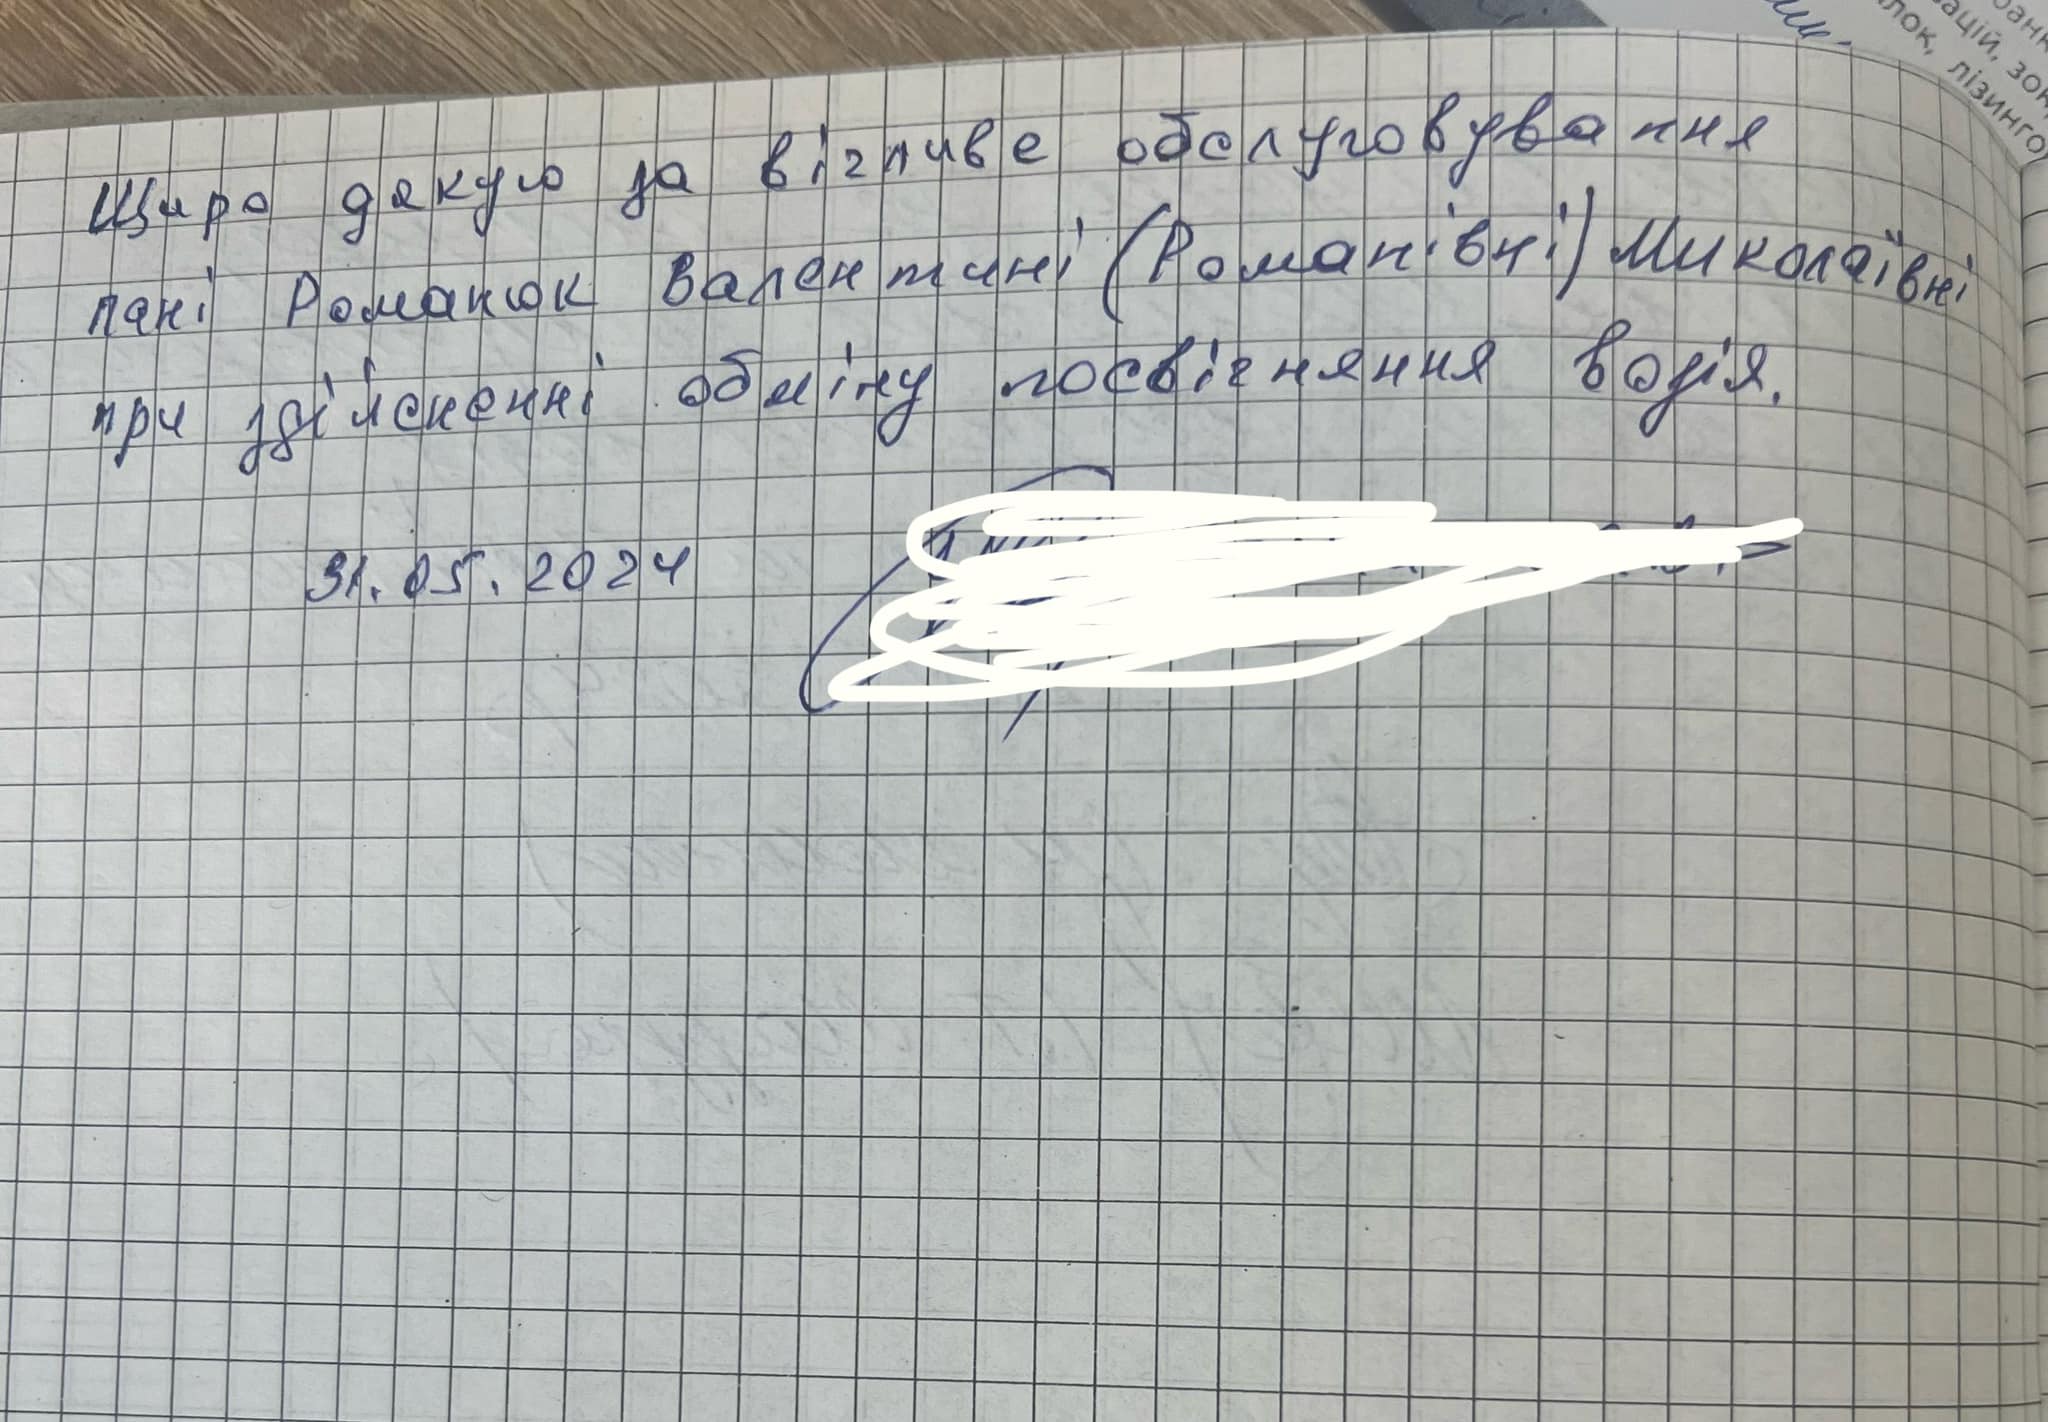 Щиро дякую за вігливе обслуговування
пані Романюк Валентині (Романівні) Миколаївні
при здійсненні обміну посвігняння водія.
31.05.2024
лок, лізинго